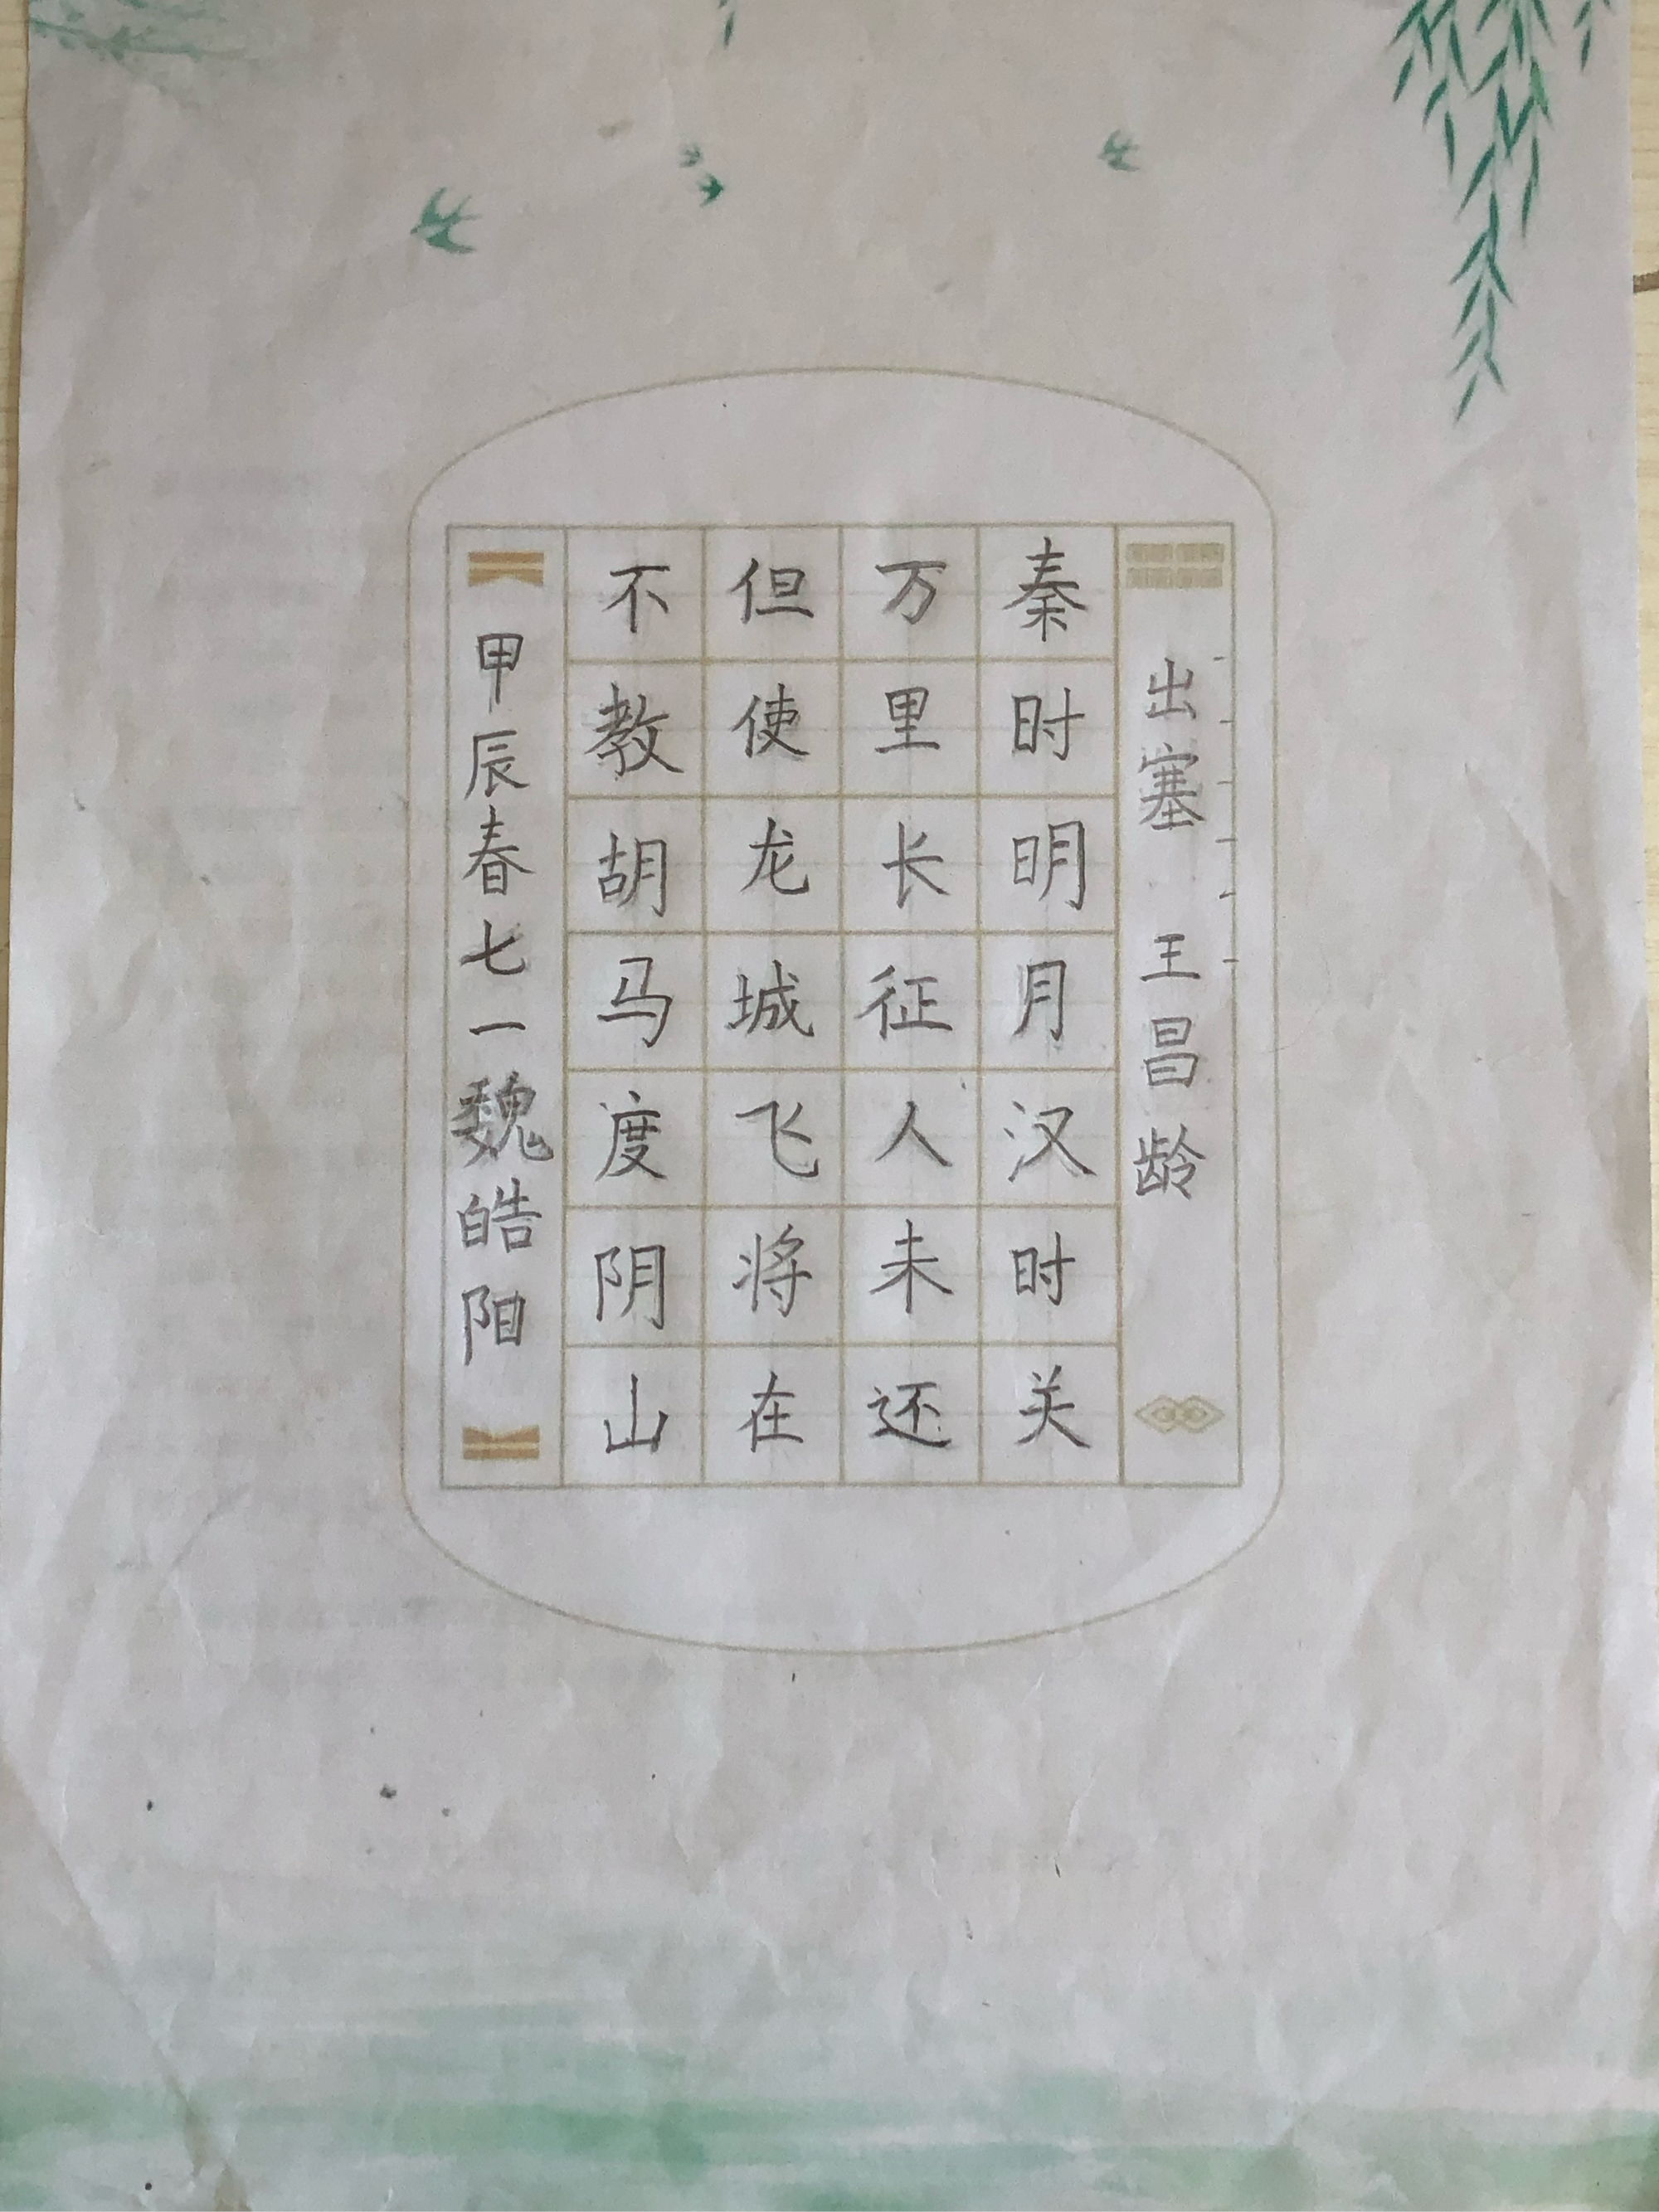 出塞 王昌龄
秦时明月汉时关
万里长征人未还
但使龙城飞将在
不教胡马度阴山
甲辰春七一魏皓阳